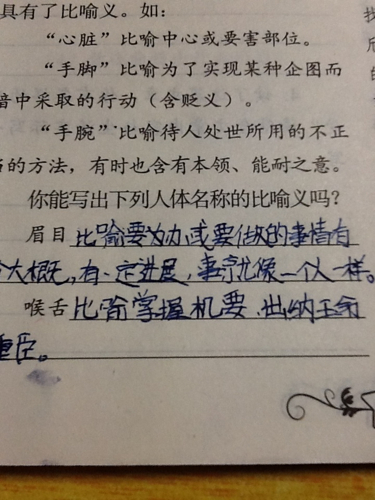 具有了比喻义。如:
“心脏”比喻中心或要害部位。
“手脚”比喻为了实现某种企图而
暗中采取的行动(含贬义)。
“手腕”比喻待人处世所用的不正
当的方法，有时也含有本领、能耐之意。
你能写出下列人体名称的比喻义吗?
眉目 比喻要为办或要做的事情有
个大概，有一定进展，事就像一个人一样。
喉舌 比喻掌握机要、出纳王命
重臣。
找
欣
的